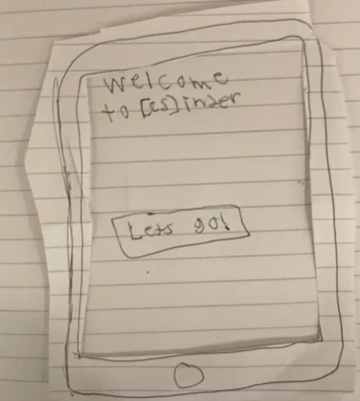 Welcome
to [cs]inder
Lets go!